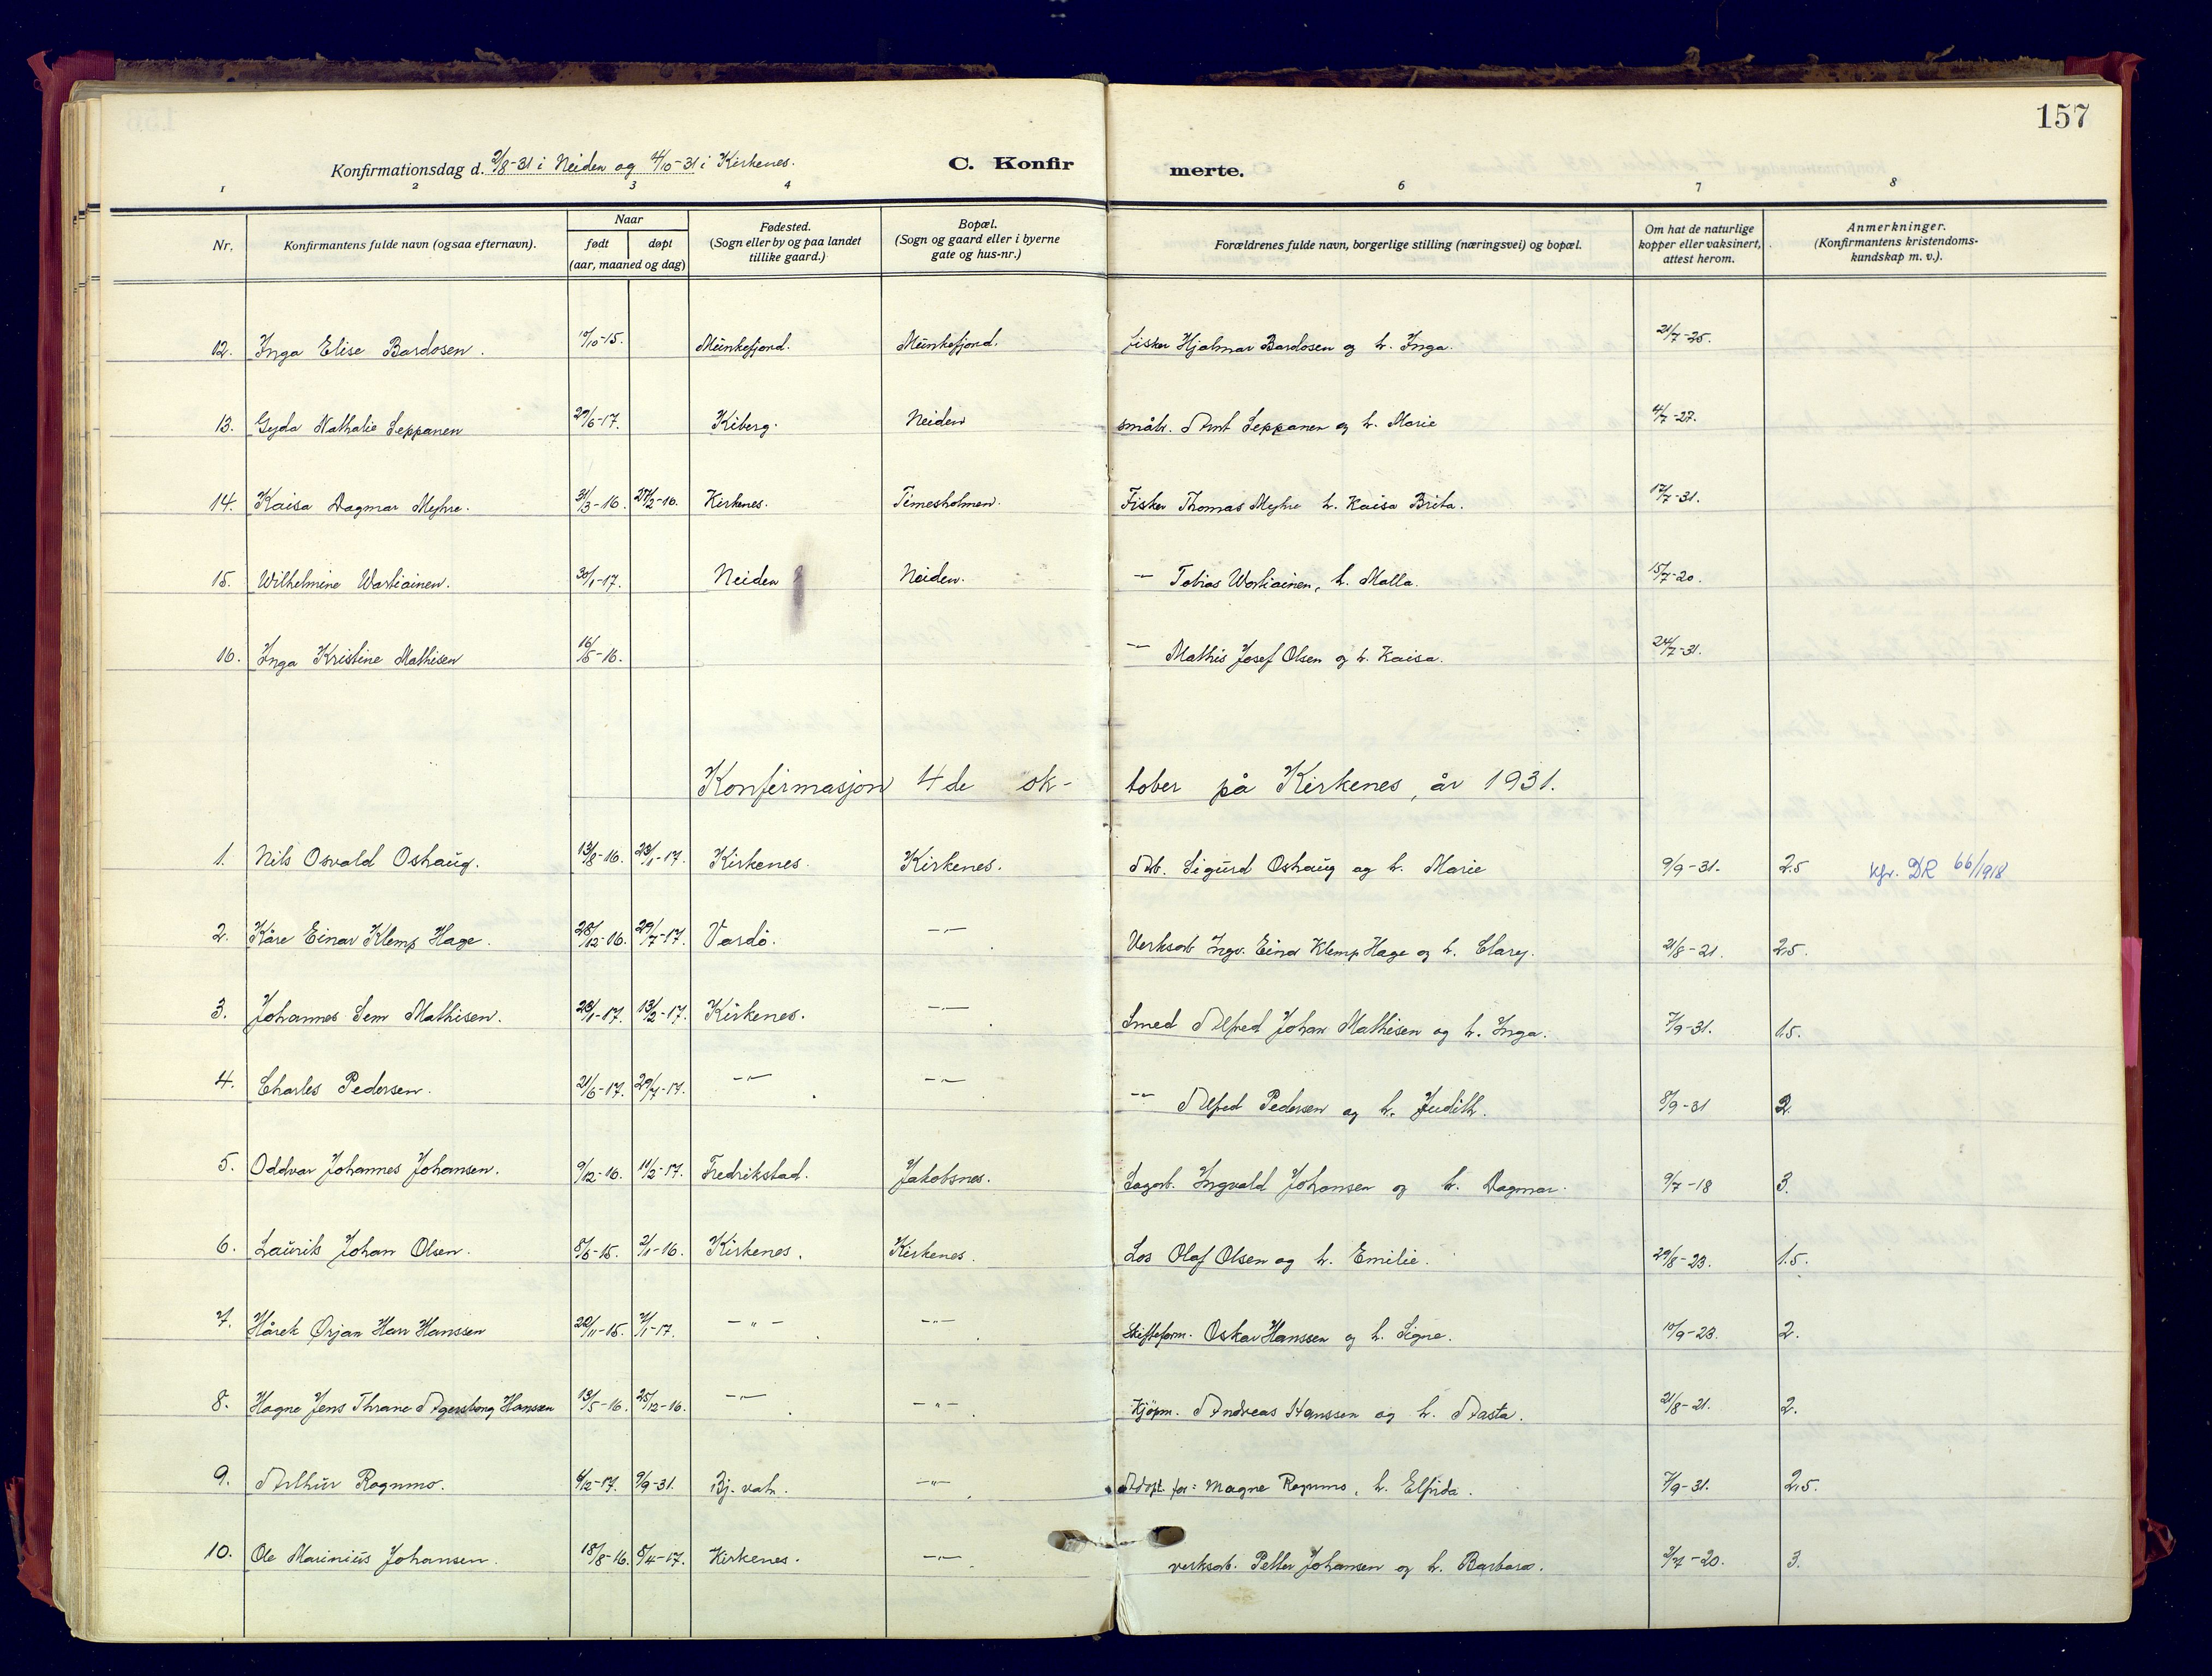 157
Konfirmationsdag d. 2/8-31 i Neiden og 4/10-31 i Kirkenes. C. Konfirmerte.
1 2 3 4 6 7 8
Nr. Konfirmantens fulde navn (ogsaa efternavn). Naar født døpt (aar, maaned og dag) Fødested. (Sogn eller by og paa landet tillike gaard.) Bopæl. (Sogn og gaard eller i byerne gate og hus-nr.) Forældrenes fulde navn, borgerlige stilling (næringsvei) og bopæl. Om hat de naturlige kopper eller vaksinert, attest herom. Anmerkninger. (Konfirmantens kristendoms-kundskap m. v.).
12. Inga Elise Bardosen. 10/10-15. Munkefjord. Munkefjord. fisker Hjalmar Bardosen og h. Inga. 21/7-25.
13. Gyda Nathalie Seppanen 29/6-17. Kiberg. Neiden småbr. Arnt Seppanen og h. Marie 4/7-27.
14. Kaisa Dagmar Myhre. 31/3-16. 27/2-16. Kirkenes. Timesholmen. Fisker Thomas Myhre h. Kaisa Brita. 17/7-31.
15. Wilhelmine Wartiainen. 30/1-17. Neiden Neiden. -"- Tobias Wartiainen, h. Malla. 15/7-20.
16. Inga Kristine Mathisen 16/5-16. -"- Mathis Josef Olsen og h. Kaisa. 24/7-31.
Konfirmasjon 4de oktober på Kirkenes, år 1931.
1. Nils Osvald Oshaug. 13/8-16. 23/1-17. Kirkenes. Kirkenes. Arb. Sigurd Oshaug og h. Marie 9/9-31. 2.5 kfr. DR 66/1918
2. Kåre Einar Klemp Hage. 28/12-16. 29/7-17. Vardö. -"- Verksarb Ingv. Einar Klemp Hage og h. Clary. 21/8-21. 2.5.
3. Johannes Sem Mathisen. 28/1-17. 13/2-17. Kirkenes. -"- Smed Alfred Johan Mathisen og h. Inga. 7/9-31. 1.5.
4. Charles Pedersen. 21/6-17. 29/7-17. -"- -"- -"- Alfred Pedersen og h. Judith. 8/9-31 2.
5. Oddvar Johannes Johansen. 9/12-16. 11/2-17. Fredrikstad. Jakobsnes. Sagarb. Ingvald Johansen og h. Dagmar. 9/7-18 3.
6. Laurits Johan Olsen. 8/6-15. 2/1-16. Kirkenes. Kirkenes. Los Olaf Olsen og h. Emilie. 29/8-23. 1.5.
7. Hårek Ørjan Hau Hanssen 22/11-15. 7/1-17. -"- -"- Skifteform. Oskar Hanssen og h. Signe. 10/9-23. 2.
8. Hagne Jens Thrane Agersborg Hanssen 13/5-16. 25/12-16. -"- -"- Kjöpm. Andreas Hanssen og h. Aasta. 21/8-21. 2.
9. Arthur Rognmo. 4/12-17. 9/9-31. Bj. vatn. -"- Adopt. for: Magne Rognmo, h. Elfrida. 7/9-31. 2.5.
10. Ole Marinius Johansen. 18/8-16. 8/4-17. Kirkenes. -"- verksarb. Petter Johansen og h. Barbara. 3/7-20. 3.